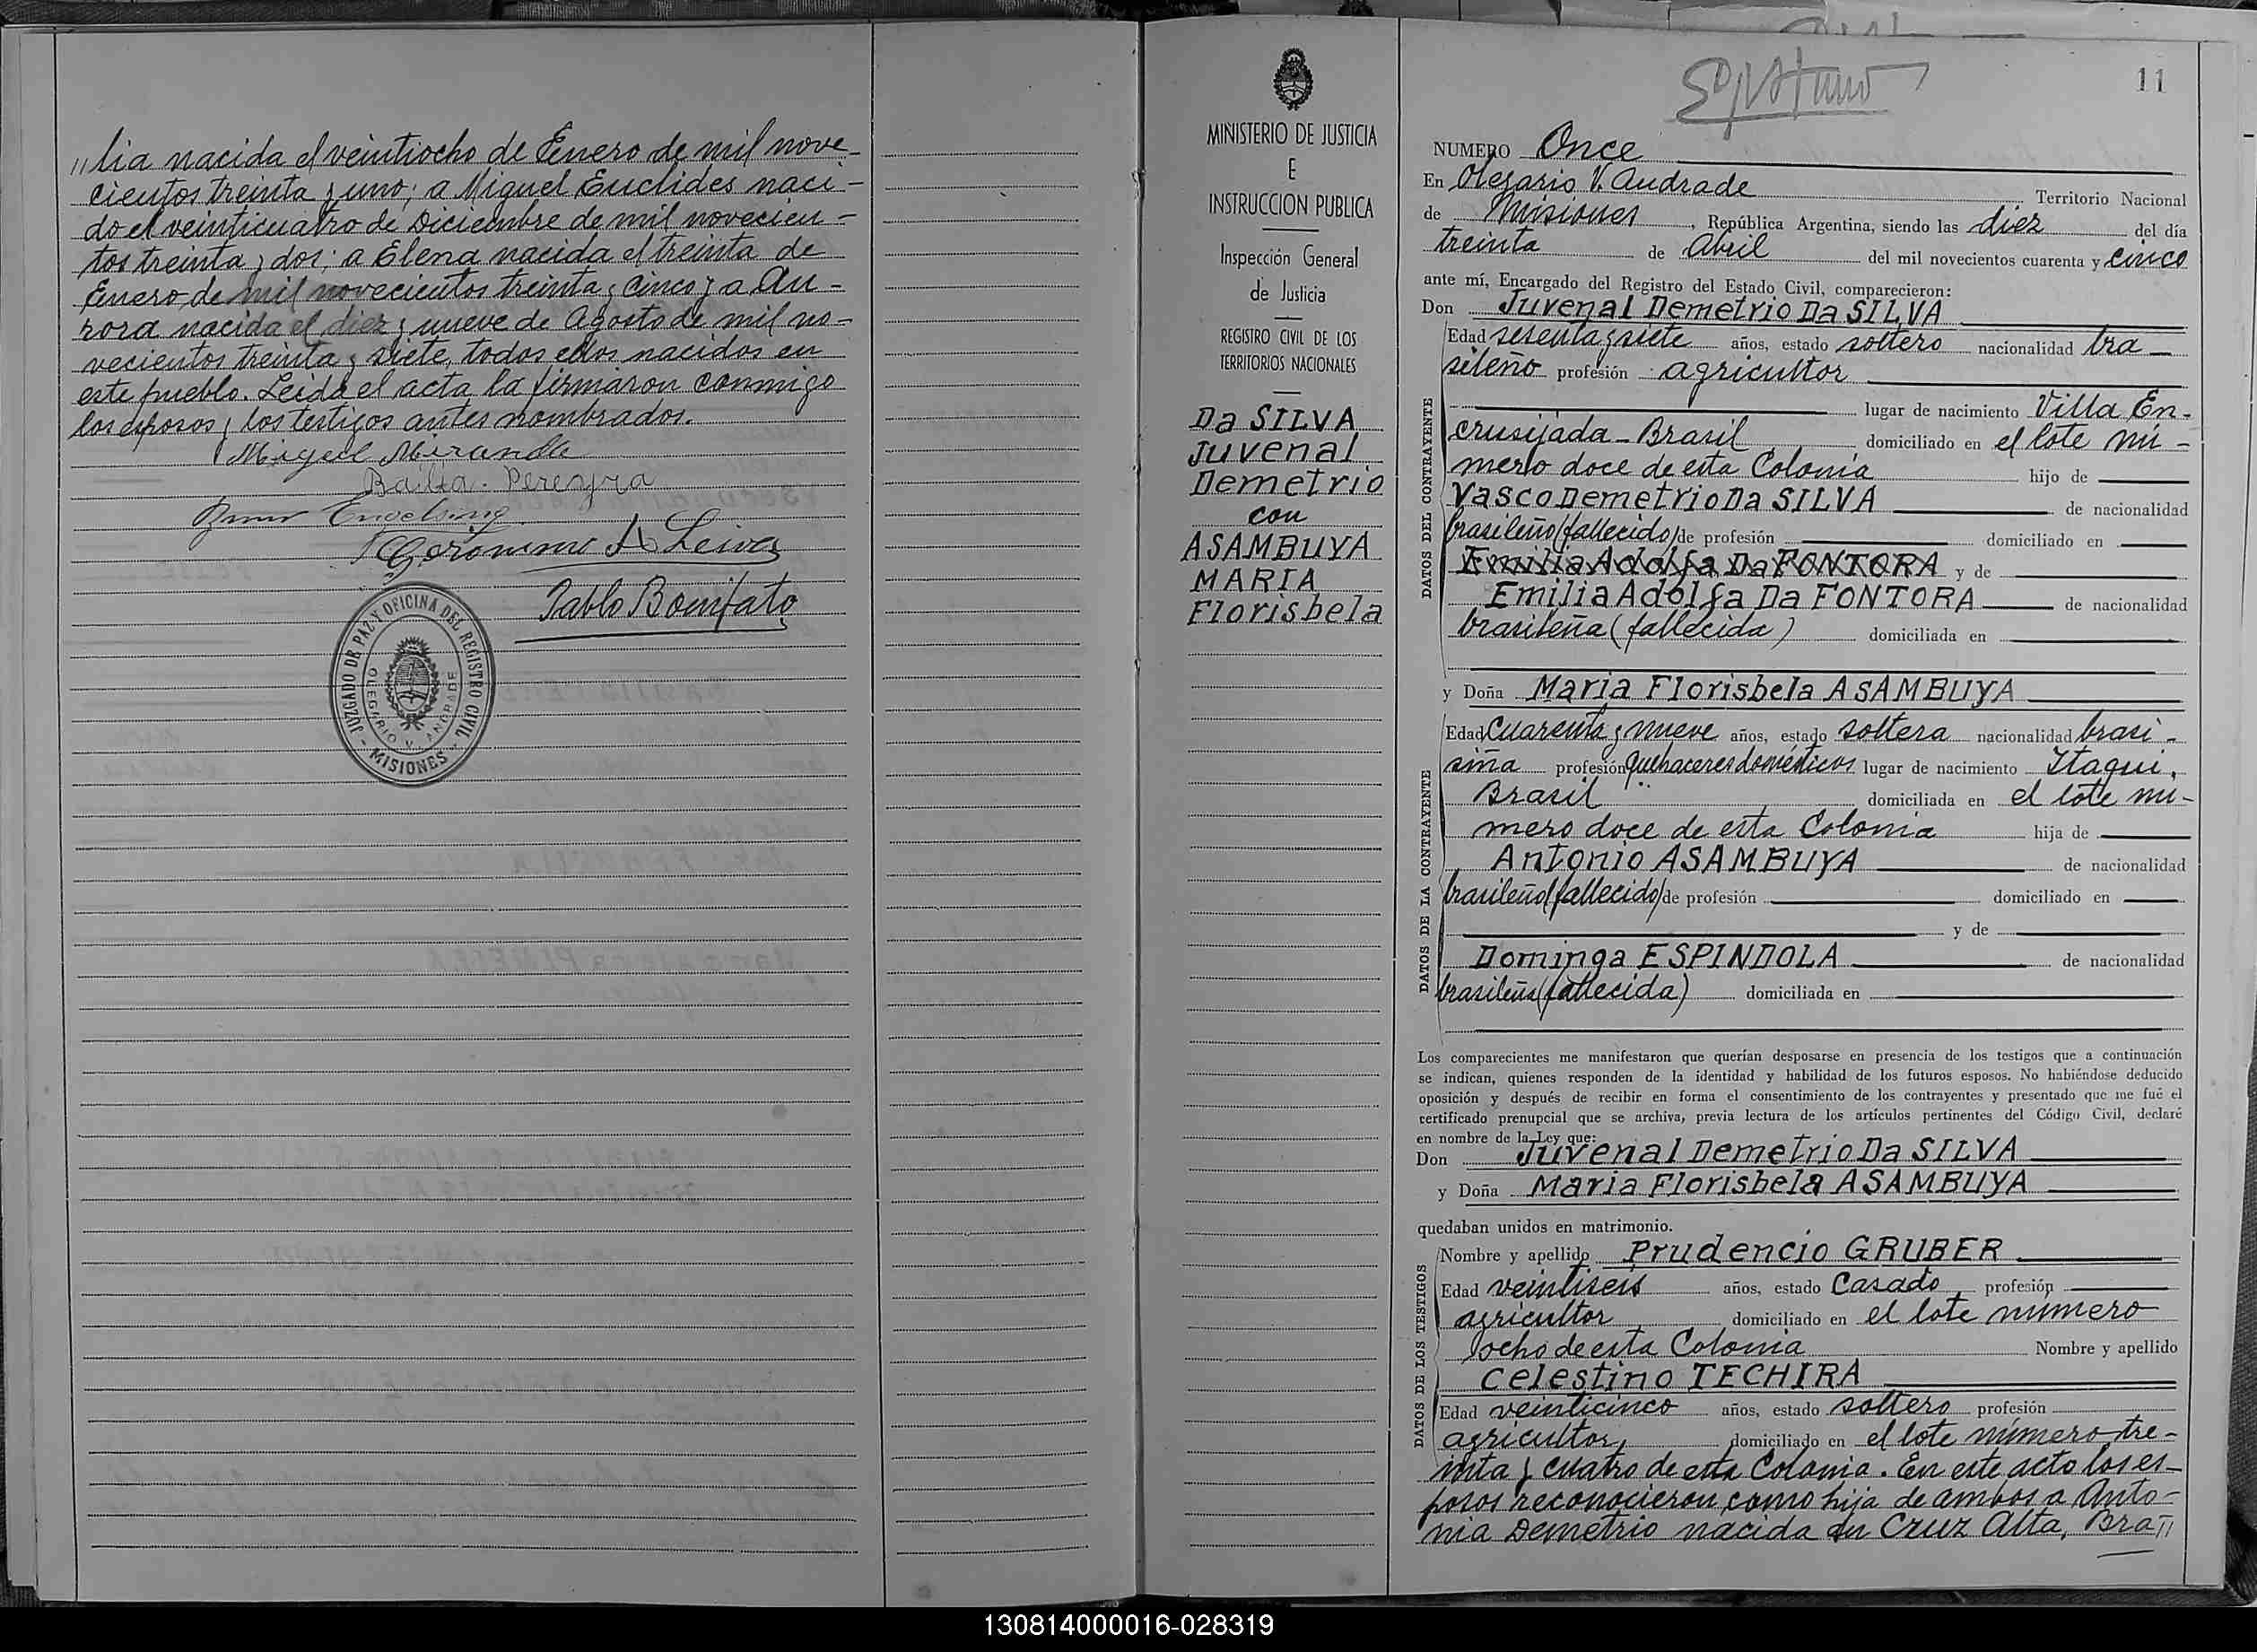 "lia nacida el veintiocho de Enero de mil nove-
cientos treinta y uno; a Miguel Euclides naci-
do el veinticuatro de Diciembre de mil novecien-
tos treinta y dos; a Elena nacida el treinta de
Enero de mil novecientos treinta y cinco y a Au-
rora nacida el diez y nueve de Agosto de mil no-
vecientos treinta y siete, todos ellos nacidos en
este pueblo. Leida el acta la firmaron conmigo
los esposos y los testigos antes nombrados.
Miguel Miranda
Balta. Pereyra
Geronimo A Leiva
Pablo Bonifato
JUZGADO DE PAZ Y OFICINA DEL REGISTRO CIVIL
OLEGARIO V. ANDRADE
- MISIONES -
MINISTERIO DE JUSTICIA
E
INSTRUCCION PUBLICA
Inspección General
de Justicia
REGISTRO CIVIL DE LOS
TERRITORIOS NACIONALES
Da SILVA
Juvenal
Demetrio
con
ASAMBUYA
MARIA
Florisbela
11
NUMERO Once
En Olegario V. Andrade Territorio Nacional
de Misiones, República Argentina, siendo las diez del día
treinta de Abril del mil novecientos cuarenta y cinco
ante mí, Encargado del Registro del Estado Civil, comparecieron:
Don Juvenal Demetrio Da SILVA
DATOS DEL CONTRAYENTE
Edad sesenta y siete años, estado soltero nacionalidad bra-
sileño profesión agricultor
lugar de nacimiento Villa En-
crusijada - Brasil domiciliado en el lote nú-
mero doce de esta Colonia hijo de
Vasco Demetrio Da SILVA de nacionalidad
brasileño (fallecido) de profesión domiciliado en
Emilia Adolfa Da FONTORA y de
Emilia Adolfa Da FONTORA de nacionalidad
brasileña (fallecida) domiciliada en
y Doña Maria Florisbela ASAMBUYA
DATOS DE LA CONTRAYENTE
Edad Cuarenta y nueve años, estado soltera nacionalidad brasi-
siña profesión Quehaceres domésticos lugar de nacimiento Itaqui,
Brasil domiciliada en el lote nú-
mero doce de esta Colonia hija de
Antonio ASAMBUYA de nacionalidad
brasileño (fallecido) de profesión domiciliado en
y de
Dominga ESPINDOLA de nacionalidad
brasileña (fallecida) domiciliada en
Los comparecientes me manifestaron que querían desposarse en presencia de los testigos que a continuación
se indican, quienes responden de la identidad y habilidad de los futuros esposos. No habiéndose deducido
oposición y después de recibir en forma el consentimiento de los contrayentes y presentado que me fué el
certificado prenupcial que se archiva, previa lectura de los artículos pertinentes del Código Civil, declaré
en nombre de la Ley que:
Don Juvenal Demetrio Da SILVA
y Doña Maria Florisbela ASAMBUYA
quedaban unidos en matrimonio.
DATOS DE LOS TESTIGOS
Nombre y apellido Prudencio GRUBER
Edad veintiseis años, estado Casado profesión
agricultor domiciliado en el lote número
ocho de esta Colonia Nombre y apellido
Celestino TECHIRA
Edad veinticinco años, estado soltero profesión
agricultor, domiciliado en el lote número tre-
inta y cuatro de esta Colonia. En este acto los es-
posos reconocieron como hija de ambos a Anto-
nia Demetrio nacida en Cruz Alta, Bra"
130814000016-028319